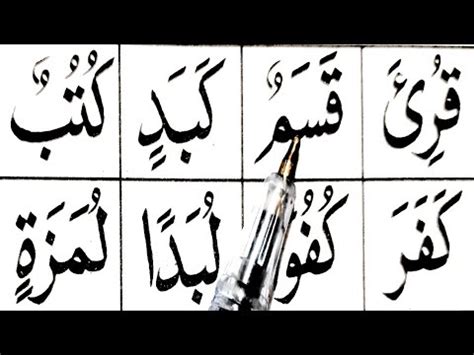 قُرِئَ قَسَمٌ كَبَدٍ كُتُبٌ
كَفَرَ لُبَدًا لُمَزَةٍ